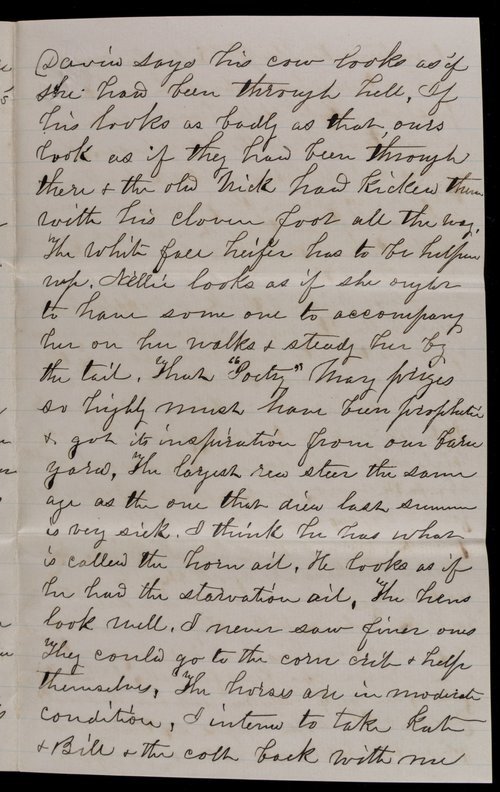 David says his cow looks as if
she had been through hell, If
his looks as badly as that, ours
look as if they had been through
there & the old Nick had kicked them
with his cloven foot all the way.
The white face heifer has to be helped
up. Nellie looks as if she ought
to have some one to accompany
her on her walks & steady her by
the tail. That "Poetry" May prizes
so highly must have been prophetic
& got its inspiration from our barn
yard, The largest red steer the same
age as the one that died last summer
is very sick. I think he has what
is called the horn ail, He looks as if
he had the starvation ail, The hens
look well. I never saw finer ones
They could go to the corn crib & help
themselves, The horses are in moderate
condition, I intend to take Kate
& Bill & the colt back with me